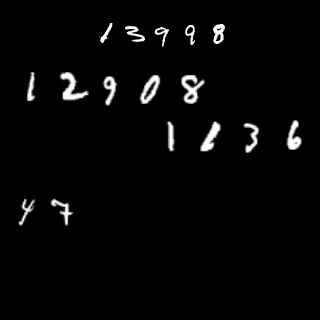 13998
12908
1136
47